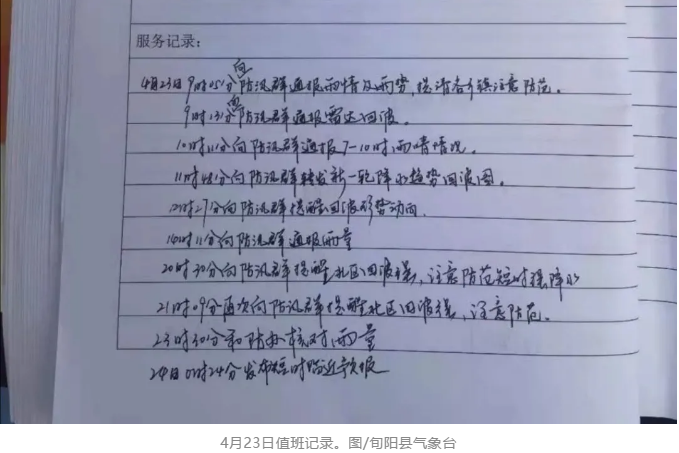 服务记录：
4月23日9时05分向防汛群通报雨情及雨势，提请各乡镇注意防范。
9时13分向防汛群通报雷达回波。
10时11分向防汛群通报7-10时雨情情况。
11时48分向防汛群转发新一轮降水趋势回波图。
时27分向防汛群提醒回波形势动向
时11分向防汛群通报雨量
20时30分向防汛群提醒北区回波强，注意防范短时强降水
21时09分再次向防汛群提醒北区回波强，注意防范。
23时30分和防办核对雨量
24日时24分发布短时临近预报
4月23日值班记录。图/旬阳县气象台